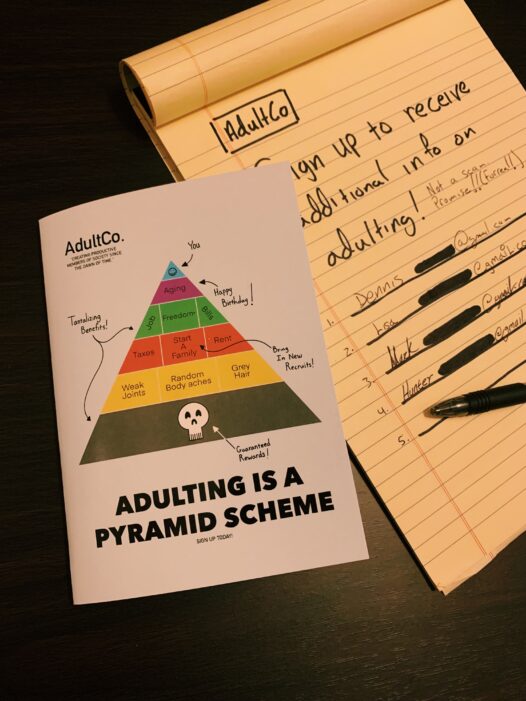 AdultCo
Sign up to receive
additional info on
adulting!
Not a scam
Promise!! (Furreal!)
1. Dennis @gmail.com
2. Lisa @gmail.co
3. Mark @gmail.c
4. Hunter
5.
AdultCo.
"CREATING PRODUCTIVE
MEMBERS OF SOCIETY SINCE
THE DAWN OF TIME"
You
Aging
Happy
Birthday!
Job Freedom* Bills
Tantalizing
Benefits!
Taxes Start A Family Rent
Bring
In New
Recruits!
Weak Joints Random Body aches Grey Hair
Guaranteed
Rewards!
ADULTING IS A
PYRAMID SCHEME
SIGN UP TODAY!